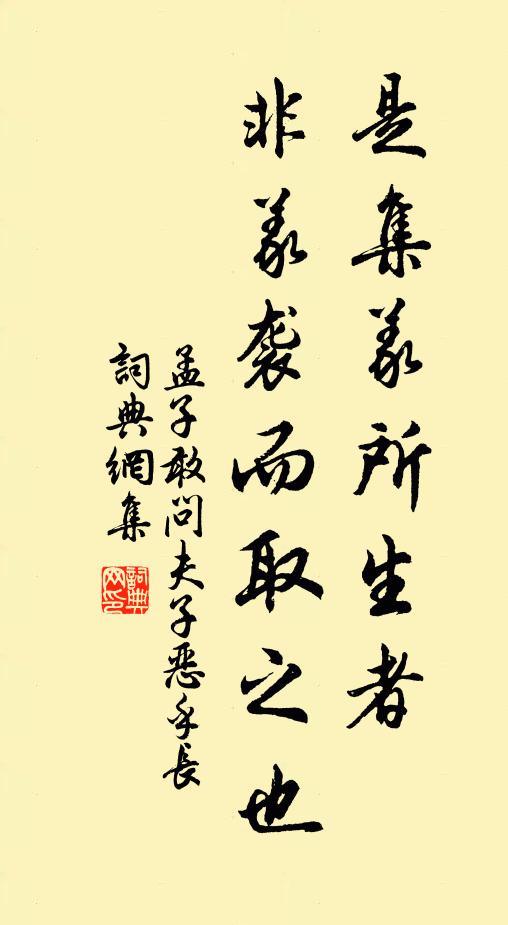 是集義所生者
非義袭而取之也
孟子敢问夫子恶乎長
詞典網集
詞典网印